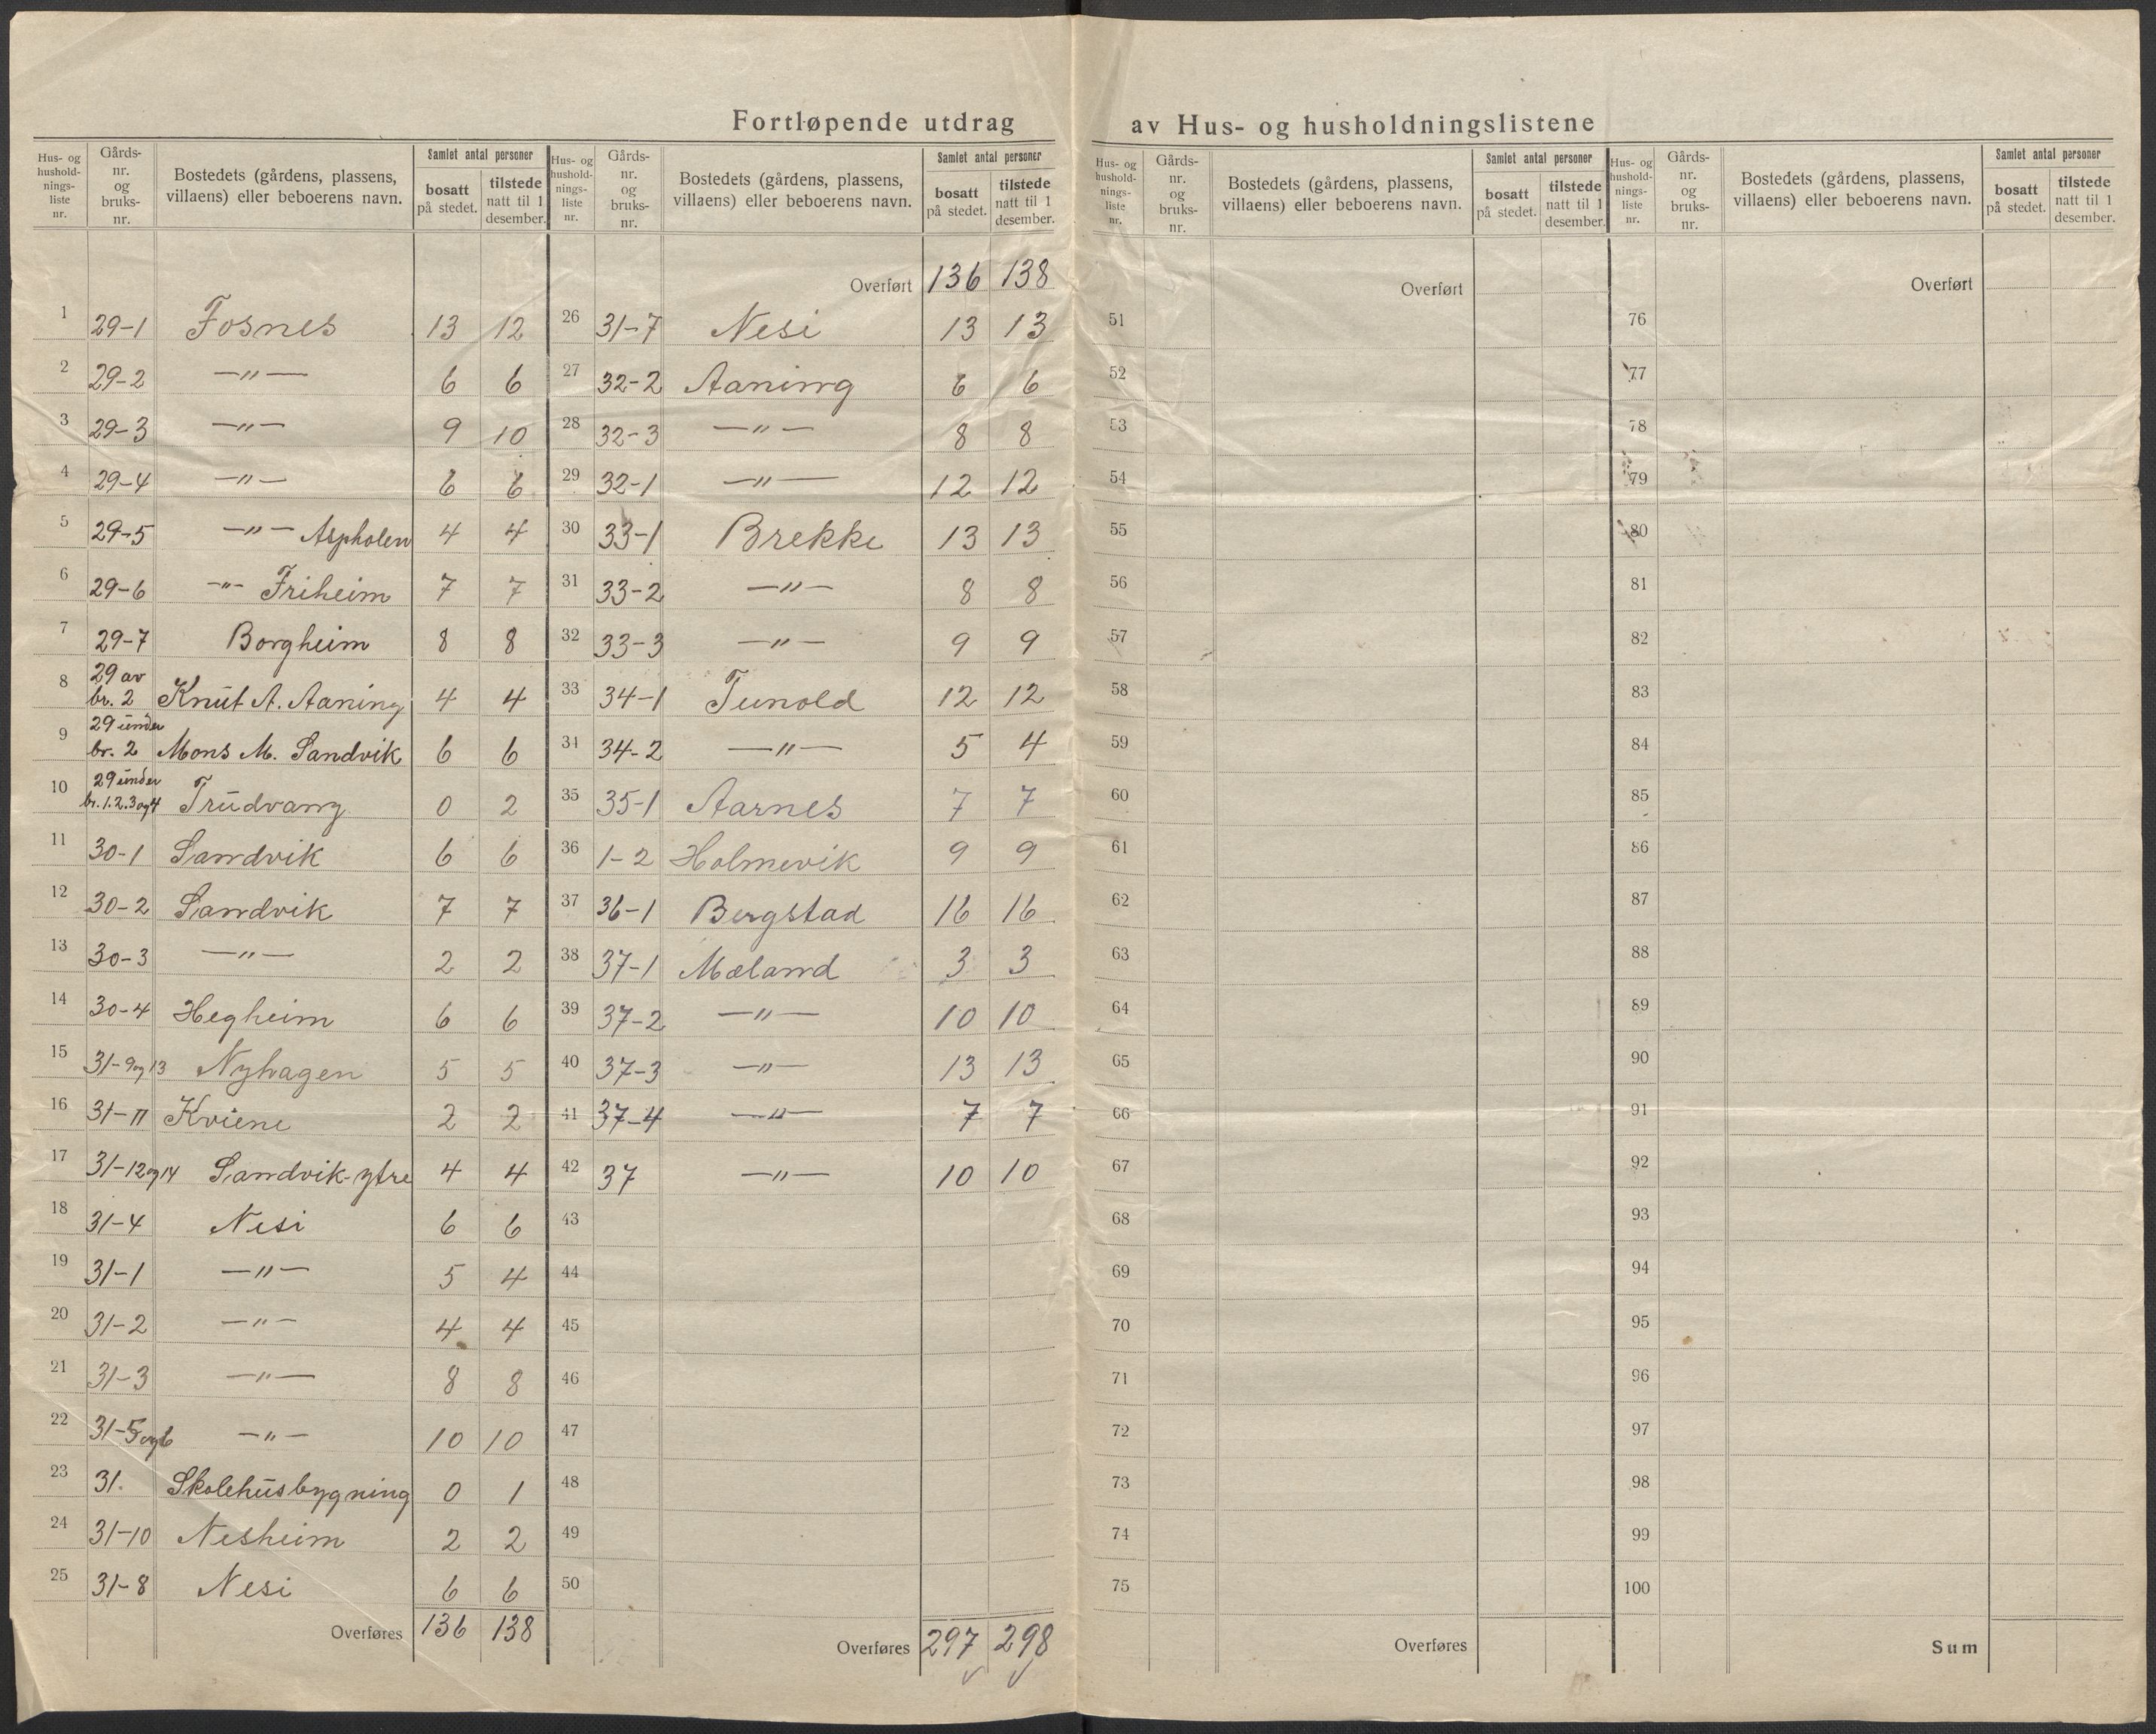 Fortløpende utdrag av Hus- og husholdningslistene
Hus- og hushold-nings-liste nr. Gårds-nr. og bruks-nr. Bostedets (gårdens, plassens, villaens) eller beboerens navn. Samlet antal personer bosatt på stedet. tilstede natt til 1 desember.
1 29-1 Fosnes 13 12
2 29-2 —"— 6 6
3 29-3 —"— 9 10
4 29-4 —"— 6 6
5 29-5 —"— Aspholen 4 4
6 29-6 -"- Friheim 7 7
7 29-7 Borgheim 8 8
8 29 av br. 2 Knut A. Aaning 4 4
9 29 under br. 2 Mons M. Sandvik 6 6
10 29 under br. 1.2.3 og 4 Trudvang 0 2
11 30-1 Sandvik 6 6
12 30-2 Sandvik 7 7
13 30-3 —"— 2 2
14 30-4 Hegheim 6 6
15 31-9 og 13 Nyhagen 5 5
16 31-11 Kviene 2 2
17 31-12 og 14 Sandvik-ytre 4 4
18 31-4 Nesi 6 6
19 31-1 —"— 5 4
20 31-2 —"— 4 4
21 31-3 —"— 8 8
22 31-5 og 6 —"— 10 10
23 31. Skolehusbygning 0 1
24 31-10 Nesheim 2 2
25 31-8 Nesi 6 6
Overføres 136 138
Hus- og hushold-nings-liste nr. Gårds-nr. og bruks-nr. Bostedets (gårdens, plassens, villaens) eller beboerens navn. Samlet antal personer bosatt på stedet. tilstede natt til 1 desember.
Overført 136 138
26 31-7 Nesi 13 13
27 32-2 Aaning 6 6
28 32-3 —"— 8 8
29 32-1 —"— 12 12
30 33-1 Brekke 13 13
31 33-2 —"— 8 8
32 33-3 —"— 9 9
33 34-1 Tunold 12 12
34 34-2 —"— 5 4
35 35-1 Aarnes 7 7
36 1-2 Holmevik 9 9
37 36-1 Bergstad 16 16
38 37-1 Mæland 3 3
39 37-2 —"— 10 10
40 37-3 —"— 13 13
41 37-4 —"— 7 7
42 37 —"— 10 10
43
44
45
46
47
48
49
50
Overføres 297 298
Hus- og hushold-nings-liste nr. Gårds-nr. og bruks-nr. Bostedets (gårdens, plassens, villaens) eller beboerens navn. Samlet antal personer bosatt på stedet. tilstede natt til 1 desember.
Overført
51
52
53
54
55
56
57
58
59
60
61
62
63
64
65
66
67
68
69
70
71
72
73
74
75
Overføres
Hus- og hushold-nings-liste nr. Gårds-nr. og bruks-nr. Bostedets (gårdens, plassens, villaens) eller beboerens navn. Samlet antal personer bosatt på stedet. tilstede natt til 1 desember.
Overført
76
77
78
79
80
81
82
83
84
85
86
87
88
89
90
91
92
93
94
95
96
97
98
99
100
Sum